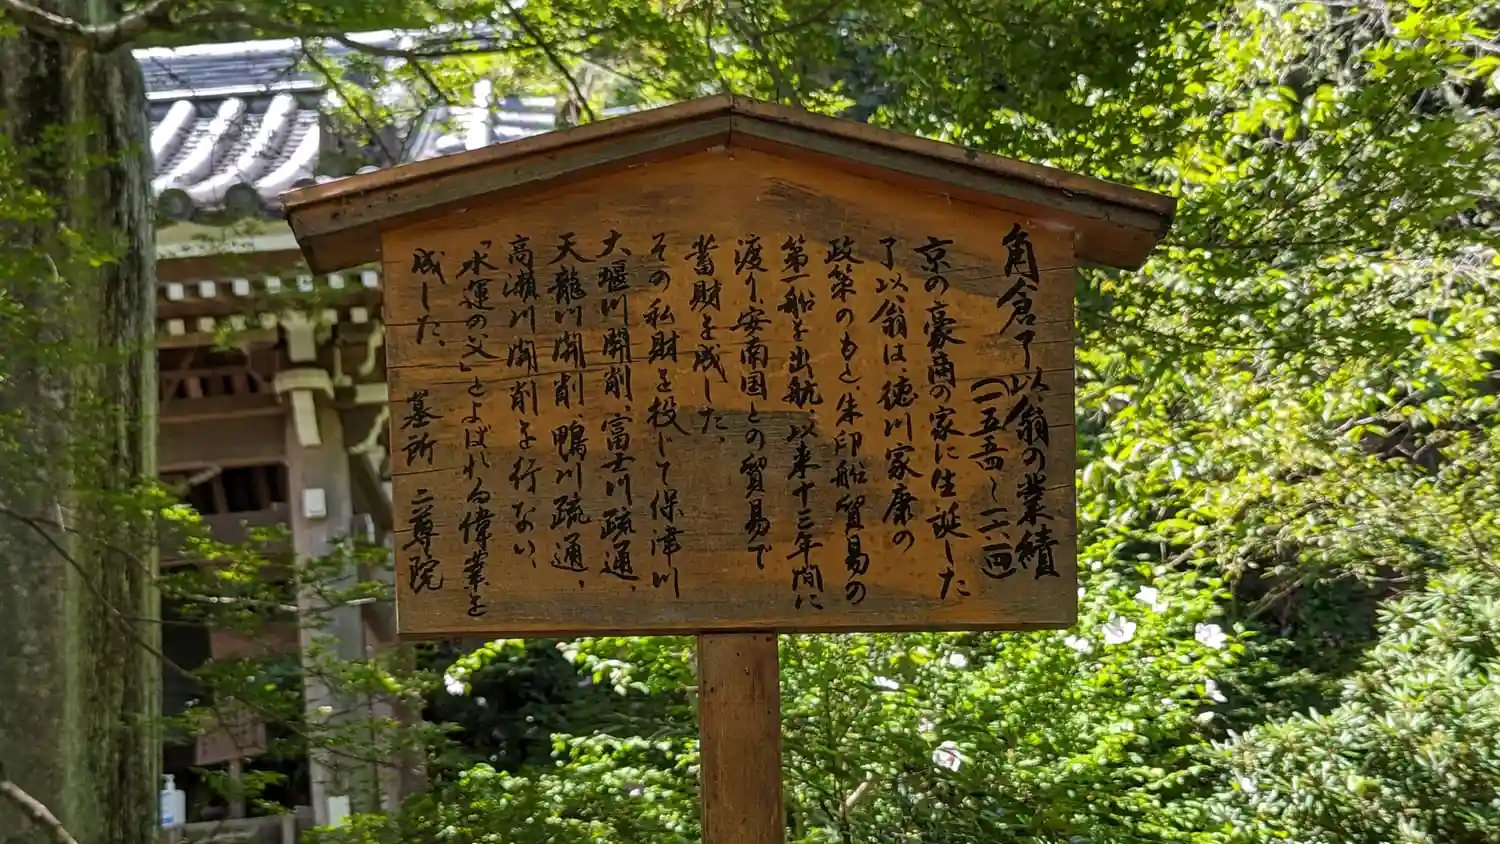 角倉了以翁の業績
(一五五四〜一六一四)
京の豪商の家に生誕した
了以翁は、徳川家康の
政策のもと、朱印船貿易の
第一船を出航、以来十三年間に
渡り、安南国との貿易で
蓄財を成した。
その私財を投じて保津川
大堰川開削、富士川疏通、
天龍川開削、鴨川疏通、
高瀬川開削を行ない、
「水運の父」とよばれる偉業を
成した。 墓所 二尊院